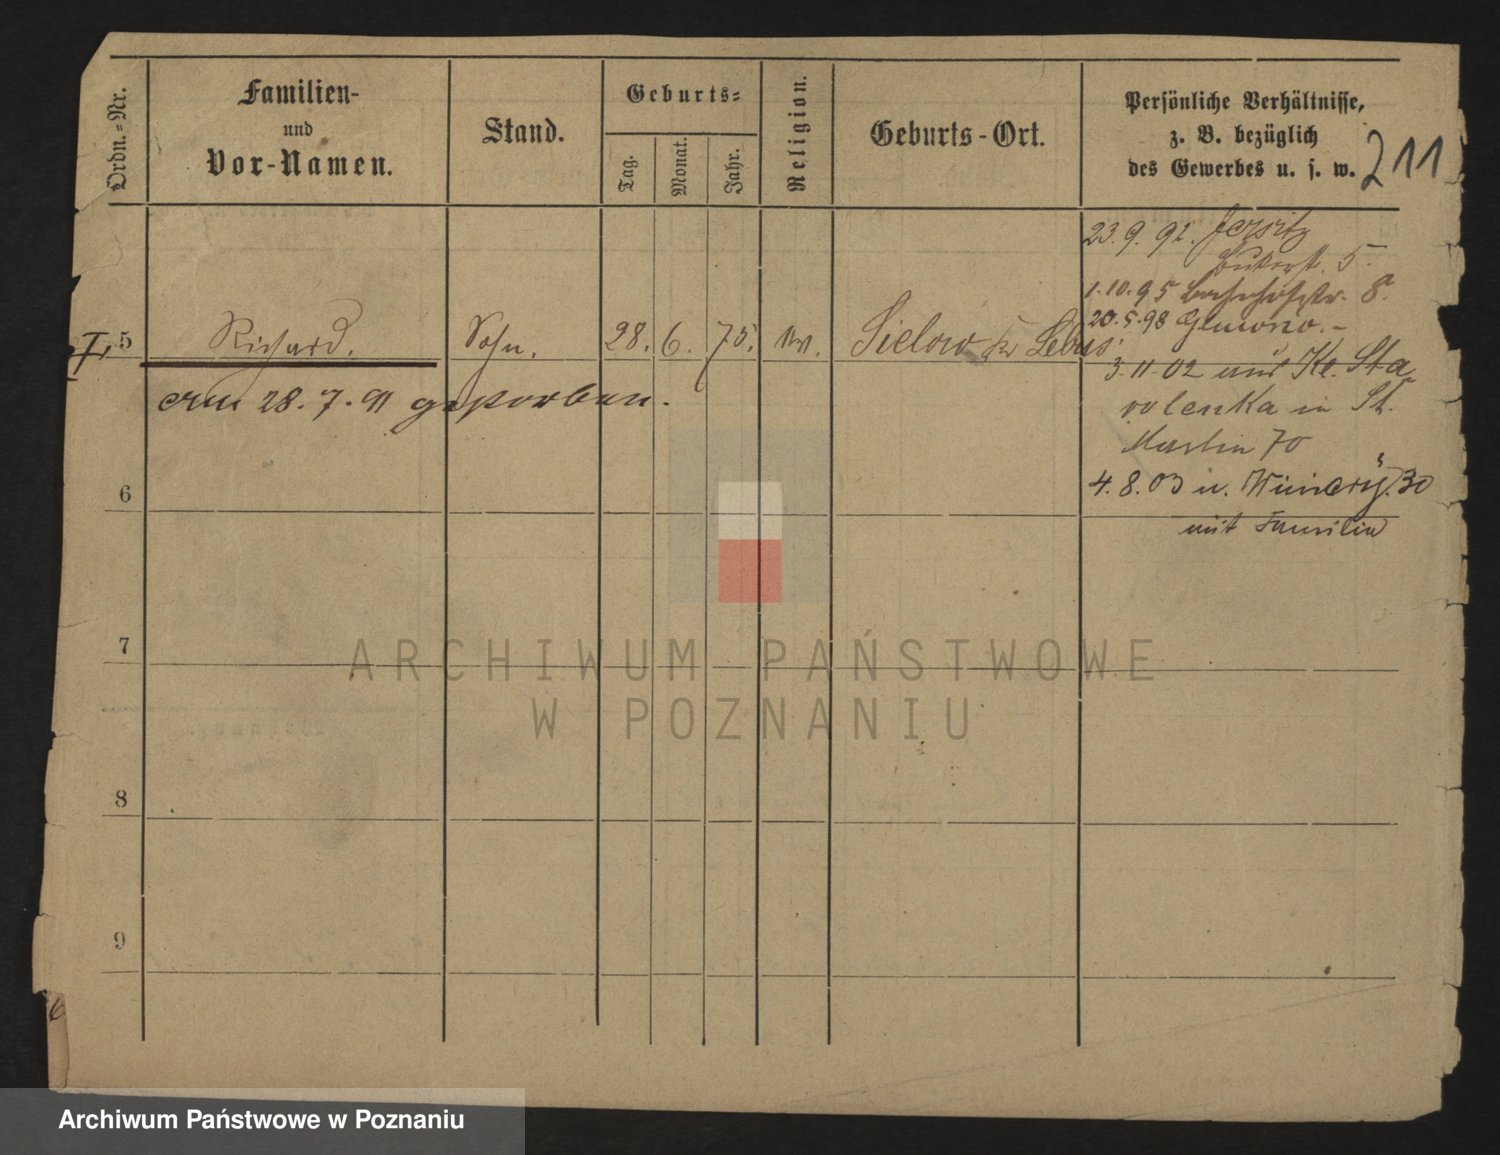 Ordn.=Nr.
Familien-
und
Vor-Namen.
Stand.
Geburts=
Tag.
Monat.
Jahr.
Religion.
Geburts-Ort.
Persönliche Verhältnisse,
z. B. bezüglich
des Gewerbes u. s. w.
211
23. 9. 92. Jersitz
Bukerst. 5.
1.10.95 Bahnhofstr. 8.
20.5.98 Glowno.-
I, 5
Richard.
Sohn.
28.
6.
75.
ev.
Sielow Kr Lebus
3 11 02 aus Kl. Sta
rolenka in St.
Martin 70
am 28. 7. 91 gestorben.
4. 8. 03 n. 30
mit Familie
6
7
8
9
6
ARCHIWUM PAŃSTWOWE
W POZNANIU
Archiwum Państwowe w Poznaniu